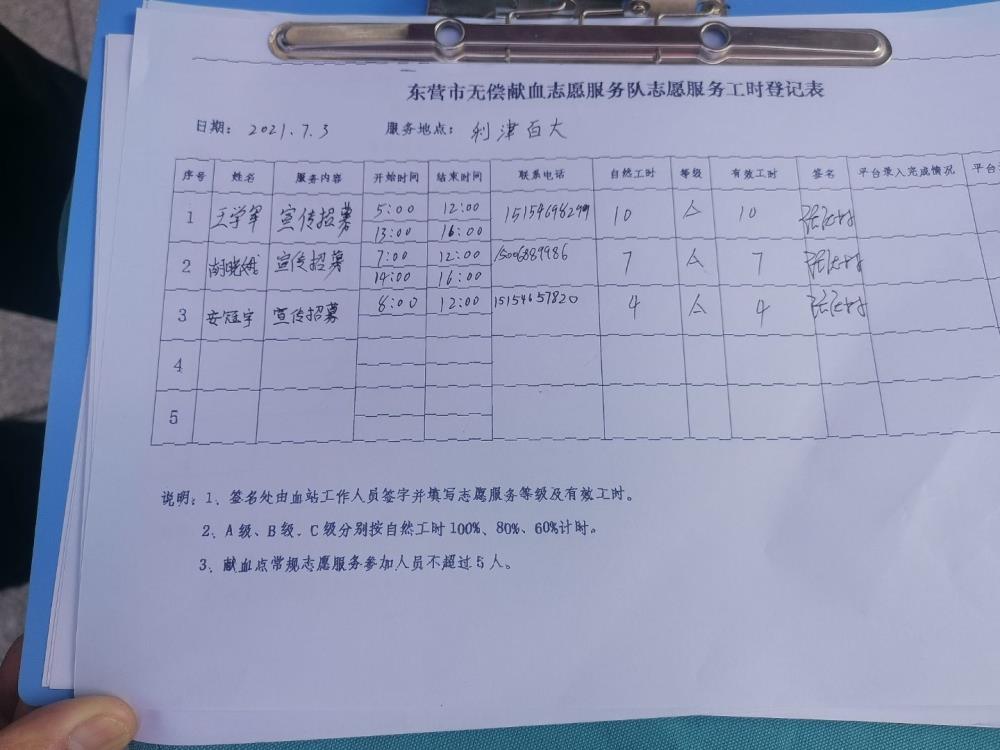 东营市无偿献血志愿服务队志愿服务工时登记表
日期： 2021.7.3 服务地点： 利津百大
序号 姓名 服务内容 开始时间 结束时间 联系电话 自然工时 等级 有效工时 签名 平台录入完成情况 平台
1 王学军 宣传招募 5:00 12:00 10 A 10
13:00 16:00
2 胡晓娥 宣传招募 7:00 12:00 15006889986 7 A 7
14:00 16:00
3 安冠宇 宣传招募 8:00 12:00 15154657820 4 A 4
4
5
说明：1、签名处由血站工作人员签字并填写志愿服务等级及有效工时。
2、A级、B级、C级分别按自然工时100%、80%、60%计时。
3、献血点常规志愿服务参加人员不超过5人。